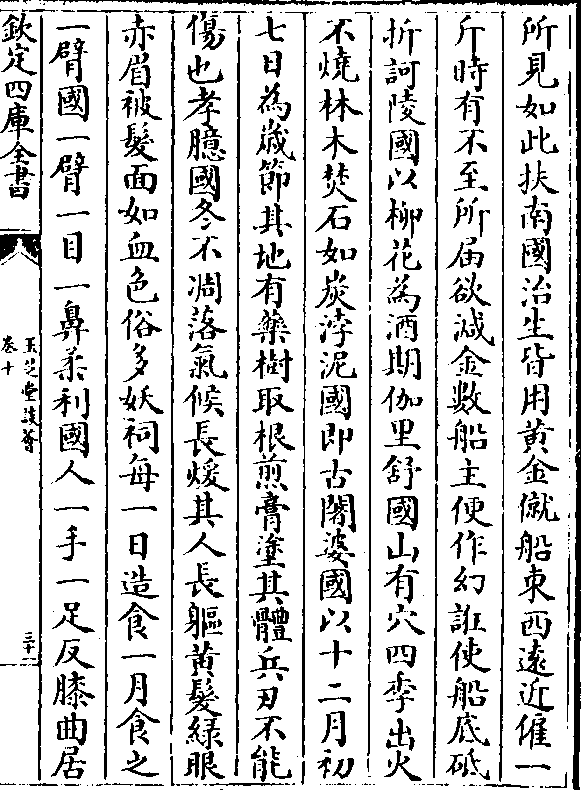 所見如此扶南國治生皆用黄金僦船東西遠近僱一
斤時有不至所届欲減金數船主便作幻誑使船底砥
折訶陵國以柳花為酒期伽里舒國山有穴四季出火
不燒林木焚石如炭浡泥國即古闍婆國以十二月初
七日為歲節其地有藥樹取根煎膏塗其體兵刃不能
傷也孝臆國冬不凋落氣候長煖其人長軀黄髮緑眼
赤眉被髮面如血色俗多妖祠每一日造食一月食之
一臂國一臂一目一鼻柔利國人一手一足反膝曲居
欽定四庫全書
玉芝堂談薈
卷十
三十二